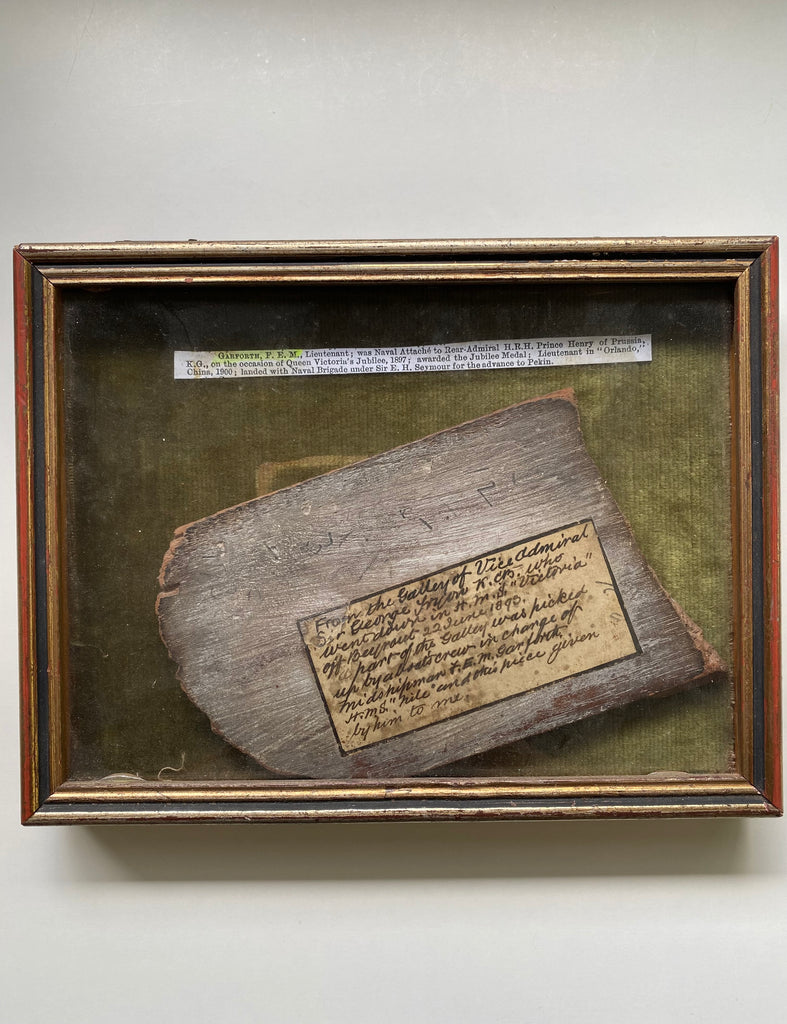 GARFORTH, F. E. M., Lieutenant; was Naval Attaché to Rear-Admiral H.R.H. Prince Henry of Prussia,
K.G., on the occasion of Queen Victoria's Jubilee, 1897; awarded the Jubilee Medal; Lieutenant in "Orlando,"
China, 1900; landed with Naval Brigade under Sir E. H. Seymour for the advance to Pekin.
From the Galley of Vice Admiral
Sir George Tryon K.C.B. who
went down in H.M.S. "Victoria"
off Beyrout 22 June 1893.
part of the Galley was picked
up by a boats crew in charge of
midshipman F. E. M. Garforth,
H.M.S. "Nile" and this piece given
by him to me.